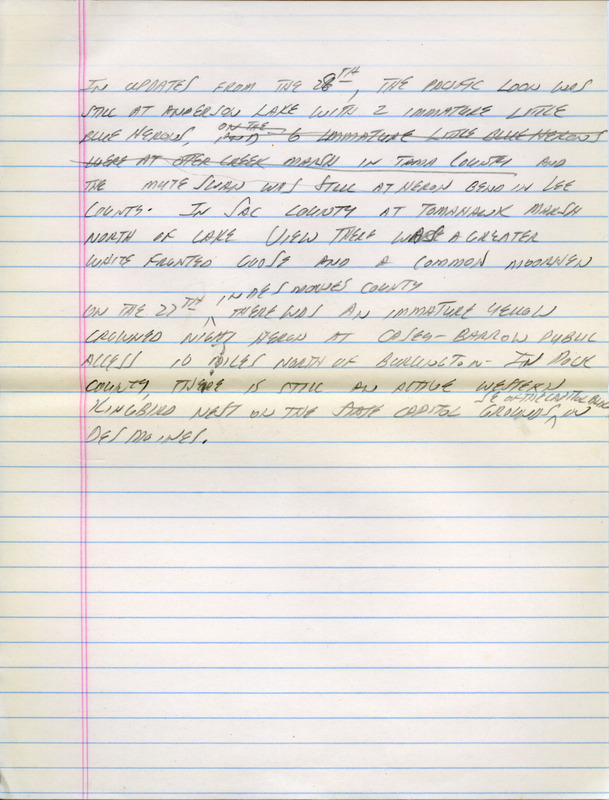 IN UPDATES FROM THE 28TH, THE PACIFIC LOON WAS
STILL AT ANDERSON LAKE WITH 2 IMMATURE LITTLE
BLUE HERONS, AND ON THE 6 IMMATURE LITTLE BLUE HERONS
WERE AT OTTER CREEK MARSH IN TAMA COUNTY AND
THE MUTE SWAN WAS STILL AT HERON BEND IN LEE
COUNTY. IN SAC COUNTY AT TOMAHAWK MARSH
NORTH OF LAKE VIEW THERE WAS A GREATER
WHITE FRONTED GOOSE AND A COMMON MOORHEN
IN DES MOINES COUNTY
ON THE 27TH THERE WAS AN IMMATURE YELLOW
CROWNED NIGHT HERON AT CASEY-BARROW PUBLIC
ACCESS 10 MILES NORTH OF BURLINGTON. IN POLK
COUNTY, THERE IS STILL AN ACTIVE WESTERN
SE OF THE CAPITOL
KINGBIRD NEST ON THE STATE CAPITOL GROUNDS, IN
DES MOINES.